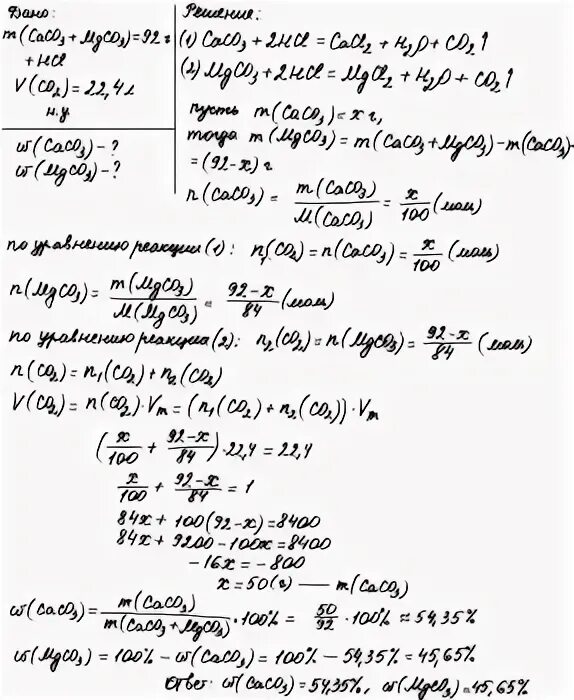 Дано:
m(CaCO₃+MgCO₃)=92 г
+HCl
V(CO₂)=22,4 л
н.у.
ω(CaCO₃)-?
ω(MgCO₃)-?
Решение:
(1) CaCO₃+2HCl=CaCl₂+H₂O+CO₂↑
(2) MgCO₃+2HCl=MgCl₂+H₂O+CO₂↑
пусть m(CaCO₃)=x г,
тогда m(MgCO₃)=m(CaCO₃+MgCO₃)-m(CaCO₃)=
=(92-x) г
n(CaCO₃) = m(CaCO₃)/M(CaCO₃) = x/100 (моль)
по уравнению реакции (1): n₁(CO₂)=n(CaCO₃)= x/100 (моль)
n(MgCO₃)= m(MgCO₃)/M(MgCO₃) = 92-x/84 (моль)
по уравнению реакции (2): n₂(CO₂)=n(MgCO₃)= 92-x/84 (моль)
n(CO₂)=n₁(CO₂)+n₂(CO₂)
V(CO₂)=n(CO₂)·Vm=(n₁(CO₂)+n₂(CO₂))·Vm
(x/100 + 92-x/84)·22,4=22,4
x/100 + 92-x/84 = 1
84x+100(92-x)=8400
84x+9200-100x=8400
-16x=-800
x=50(г) — m(CaCO₃)
ω(CaCO₃)= m(CaCO₃)/m(CaCO₃+MgCO₃) ·100% = 50/92 ·100% ≈ 54,35%
ω(MgCO₃)=100%-ω(CaCO₃)=100%-54,35%=45,65%
Ответ: ω(CaCO₃)=54,35%, ω(MgCO₃)=45,65%